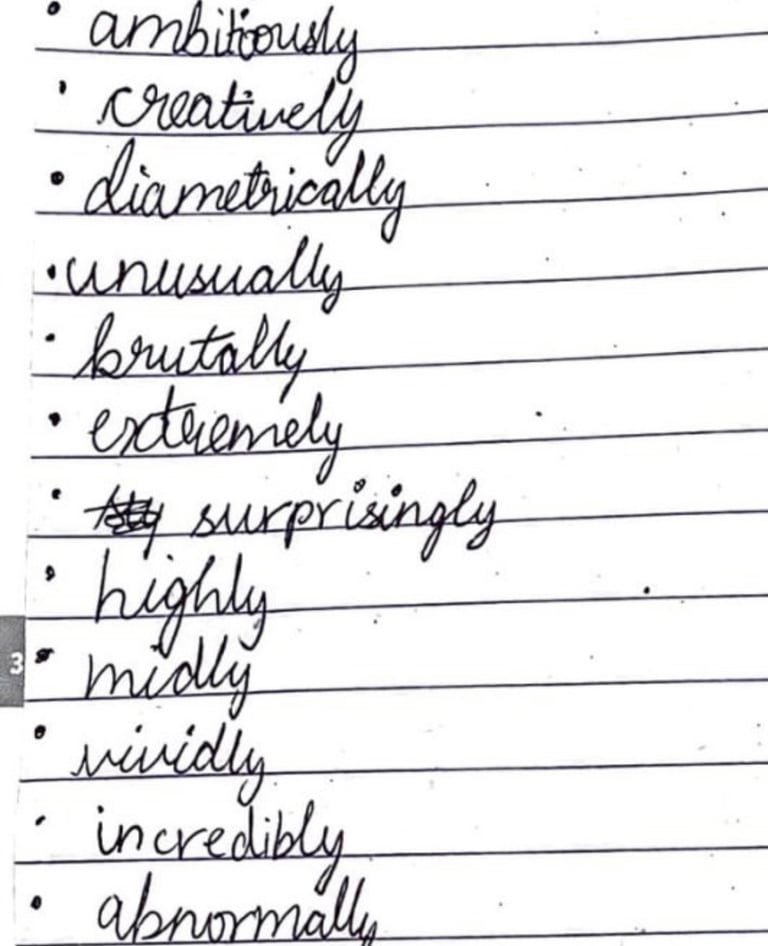 • ambitiously
• creatively
• diametrically
• unusually
• brutally
• extremely
• surprisingly
• highly
3 • midly
• vividly
• incredibly
• abnormally